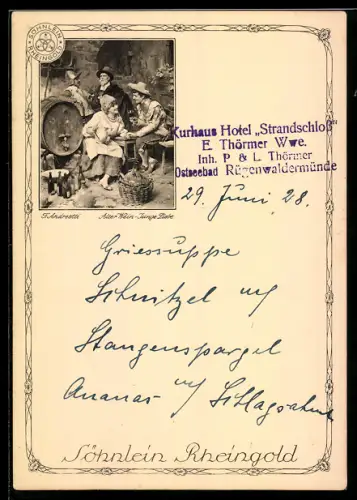 SÖHNLEIN RHEINGOLD
Kurhaus Hotel „Strandschloß"
E. Thörmer Wwe.
Inh. P & L Thörmer
Ostseebad Rügenwaldermünde
F. Andreotti Alter Wein - Junge Liebe
29. Juni 28.
Griessuppe
Schnitzel m/
Stangenspargel
Ananas m/ Schlagsahne
Söhnlein Rheingold